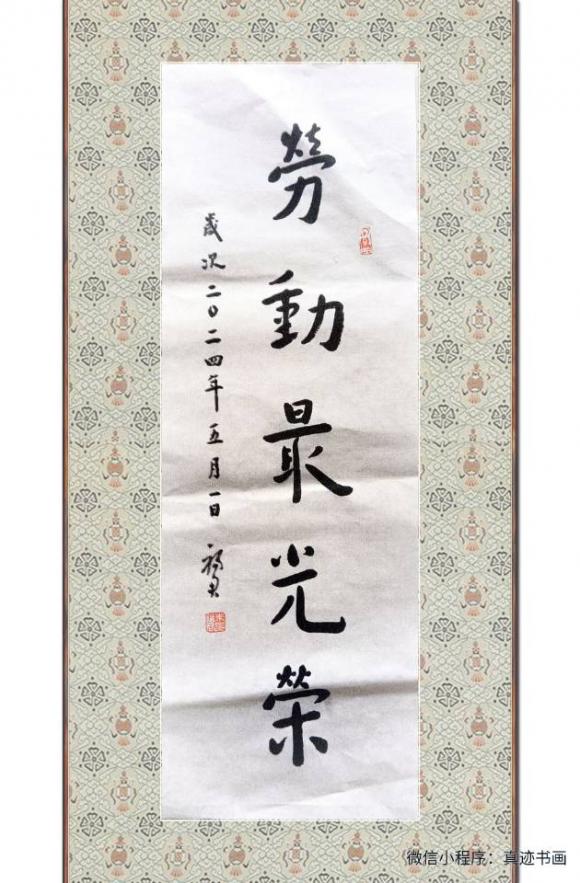 勞動最光榮
歲次二〇二四年五月一日
微信小程序：真迹书画